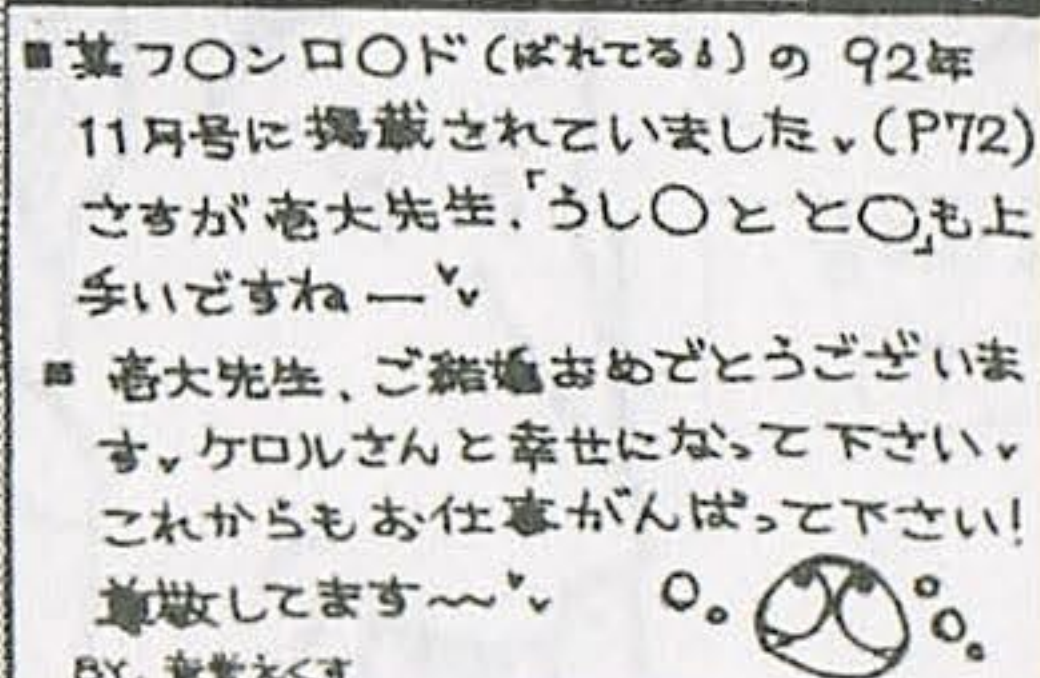 ■某フ○ンロ○ド(ばれてる💧)の 92年
11月号に掲載されていました♥(P72)
さすが壱大先生、「うし○とと○」も上
手いですねー♥♥
■壱大先生、ご結婚おめでとうございま
す♥ケロルさんと幸せになって下さい♥
これからもお仕事がんばって下さい!
尊敬してます〜〜♥♥
BY.